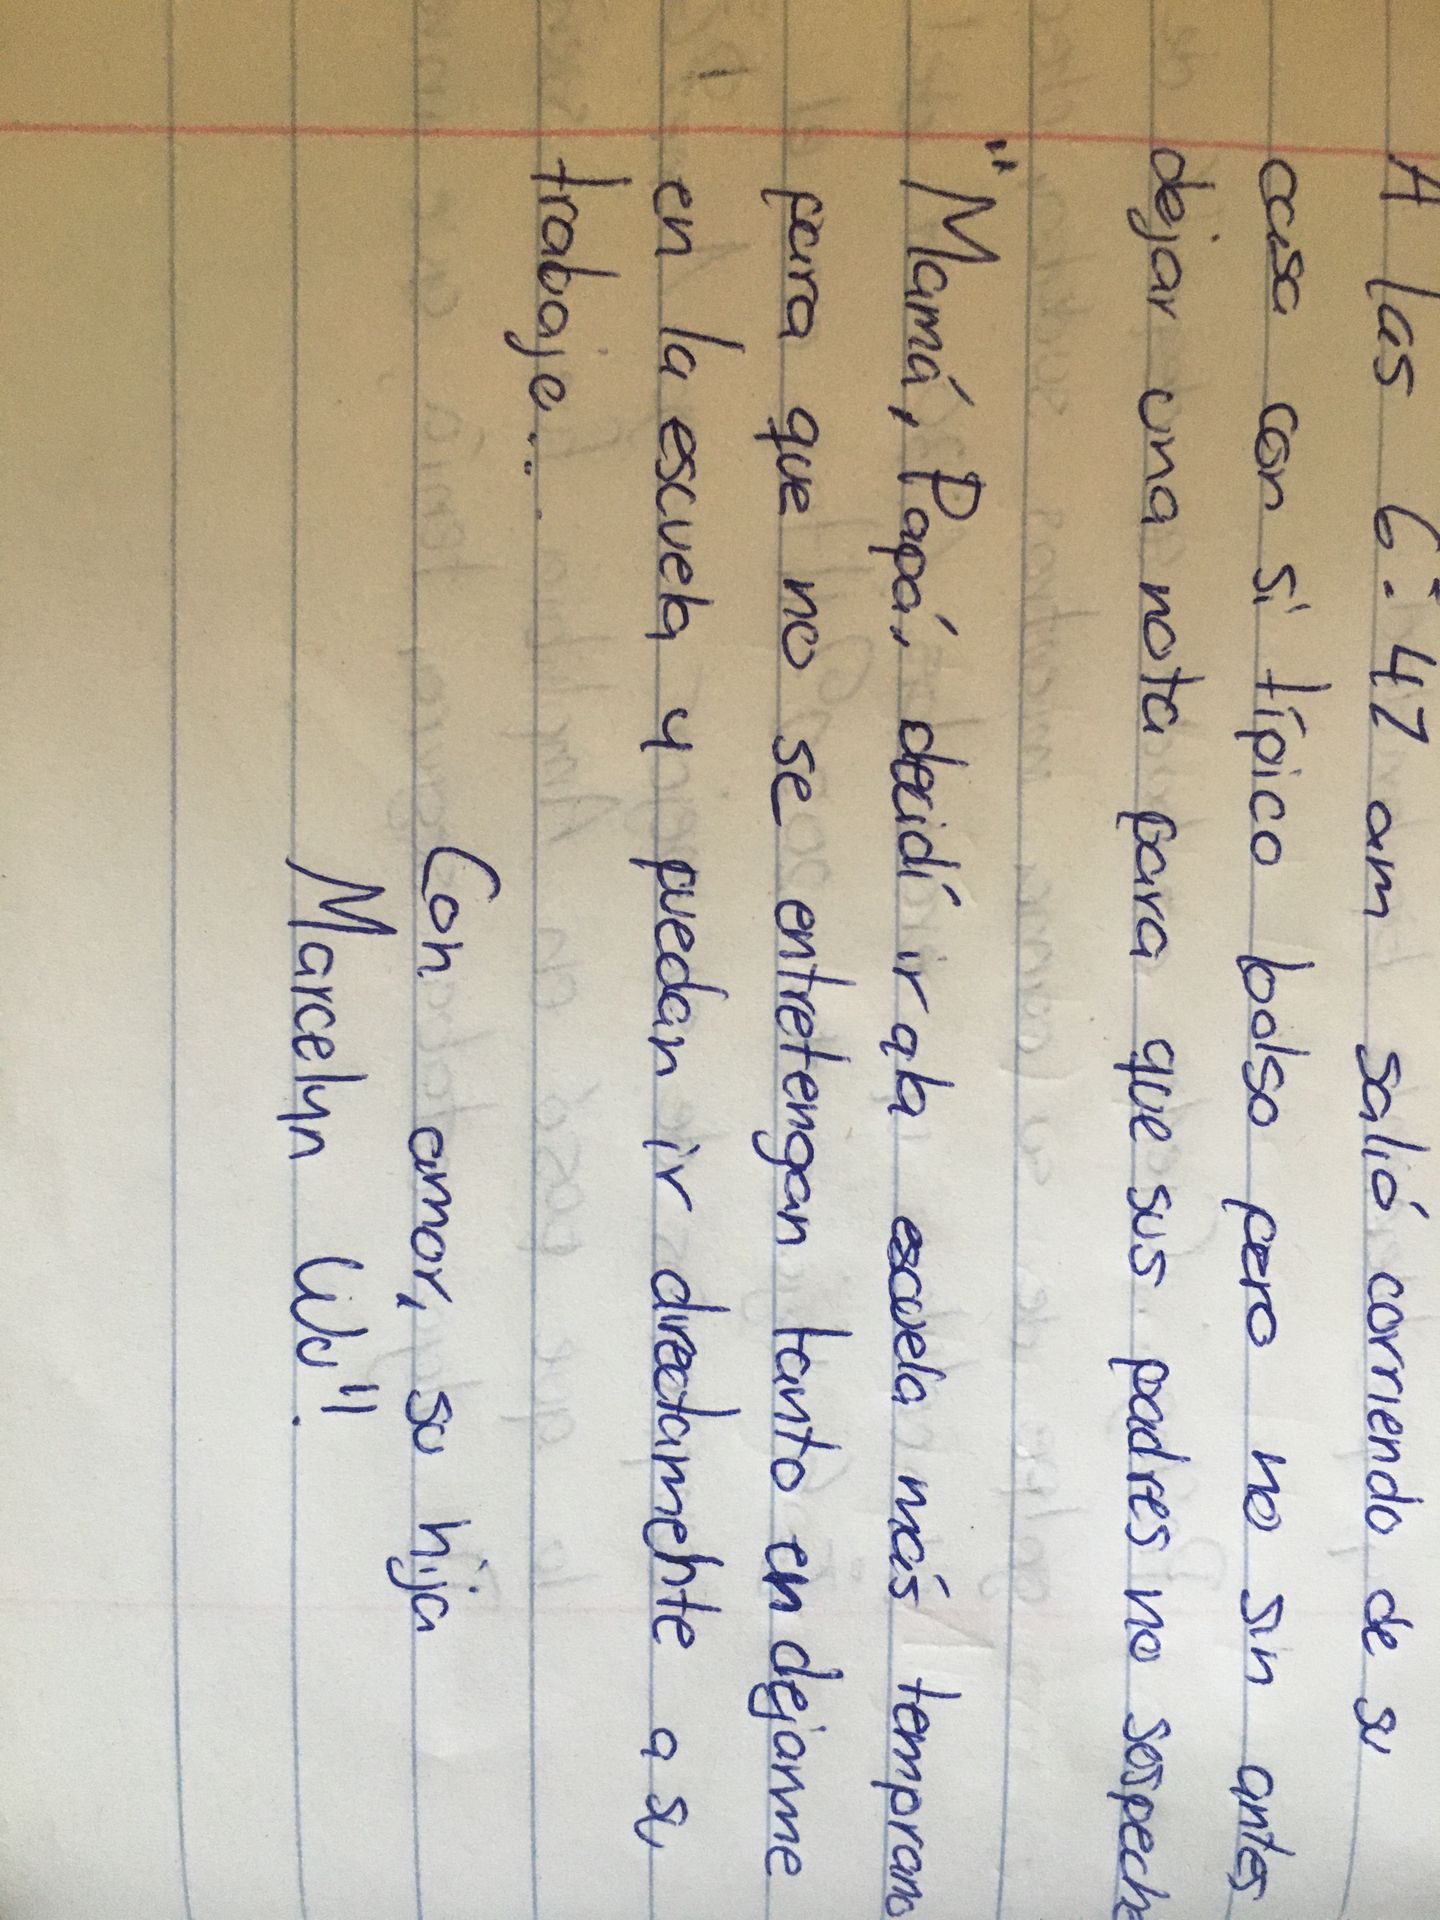 A las 6:47 am salió corriendo de su
casa con si típico bolso pero no sin antes
dejar una nota para que sus padres no sospech
"Mamá, Papá, decidí ir a la escuela más temprano
para que no se entretengan tanto en dejarme
en la escuela y puedan ir directamente a su
trabaje...
Con amor, su hija
Marcelyn Wu".